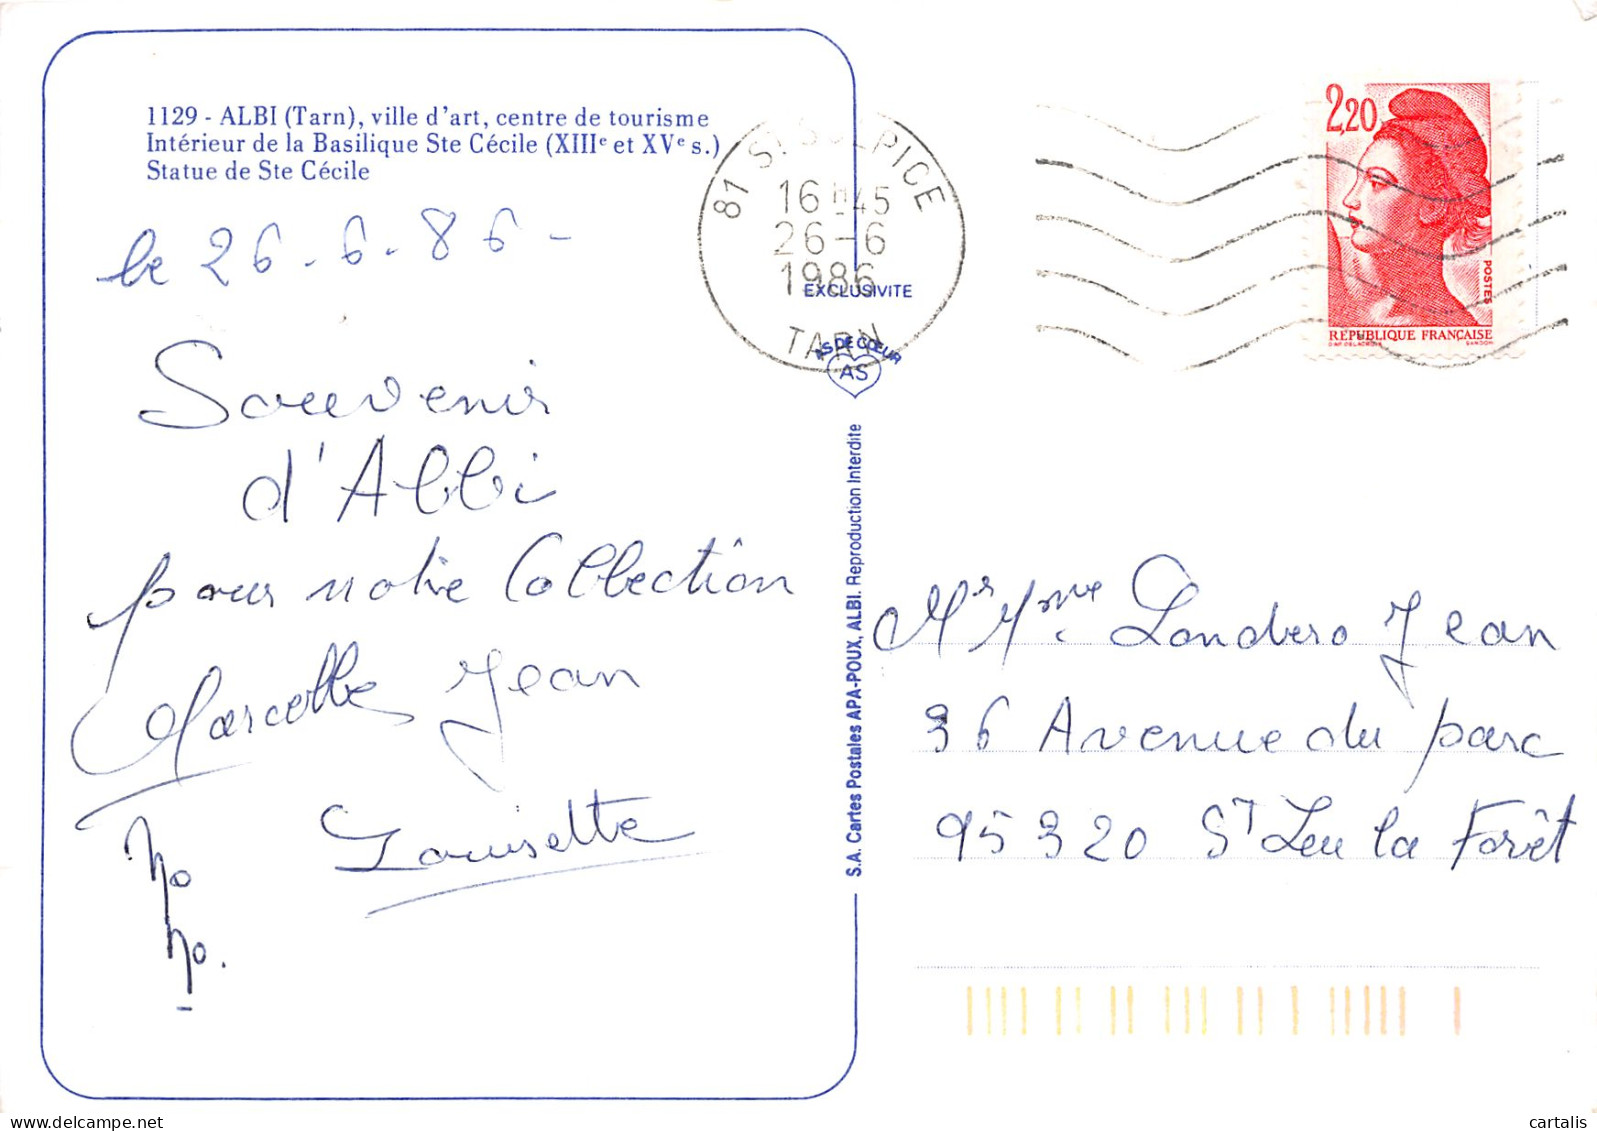 1129 - ALBI (Tarn), ville d'art, centre de tourisme
Intérieur de la Basilique Ste Cécile (XIIIe et XVe s.)
Statue de Ste Cécile
le 26-6-86-
Souvenir
d'Albi
pour notre Collection
Marcelle Jean
Louisette
81 ST SULPICE
16 H45
26-6
1986
TARN
EXCLUSIVITE
AS DE CŒUR
AS
S.A. Cartes Postales APA-POUX, ALBI. Reproduction Interdite
2,20
POSTES
REPUBLIQUE FRANÇAISE
D'AP. DELACROIX GANDON
Mr Mme Landero Jean
36 Avenue du parc
95320 ST Leu la Forêt
cartalis